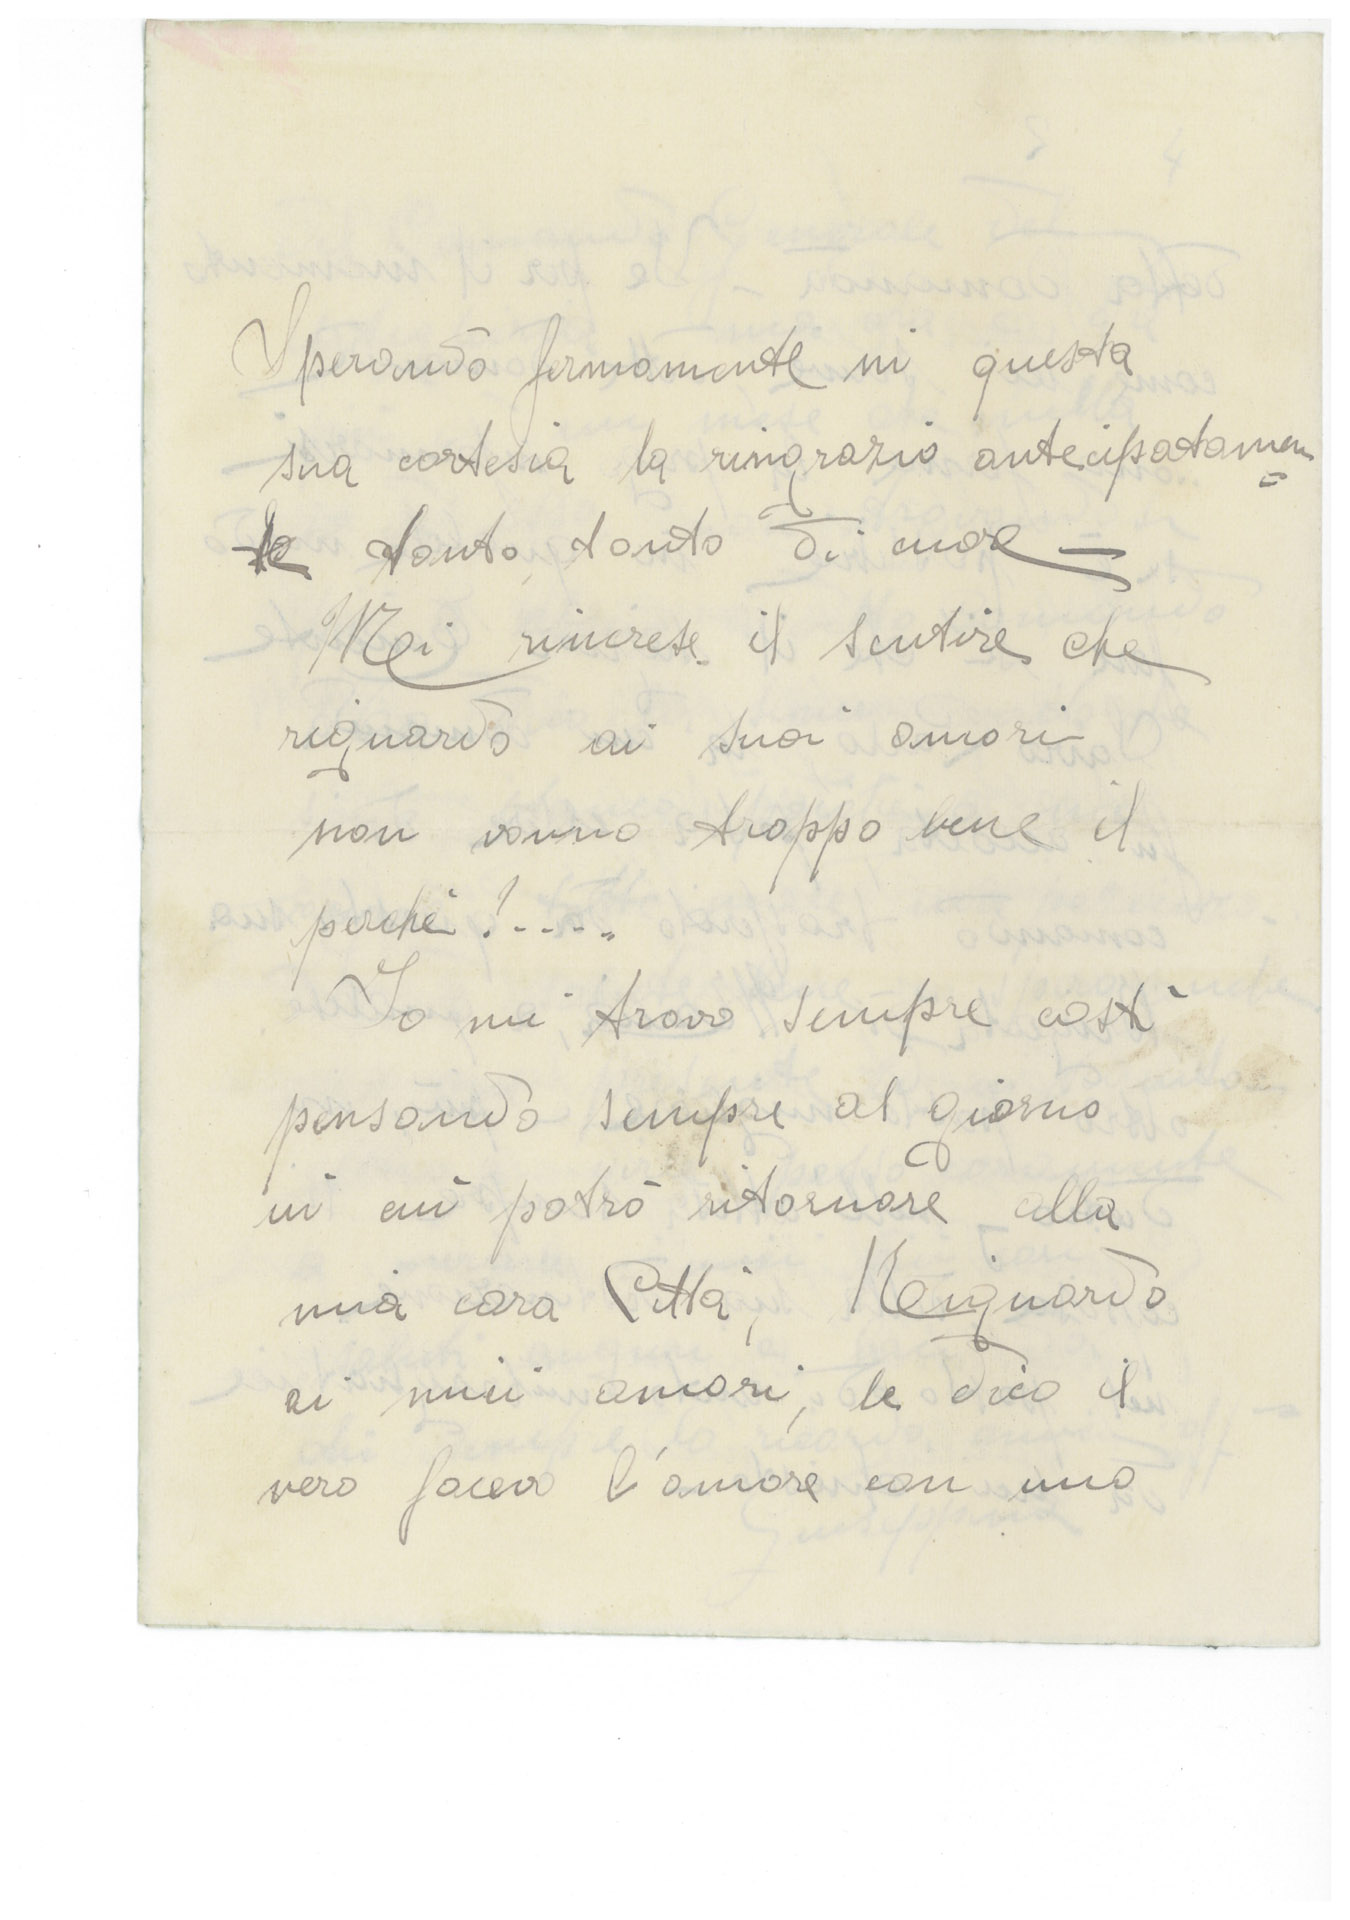 Sperando fermamente in questa
sua cortesia la ringrazio antecipatamen=
te tanto, tanto di cuore —
Mi rincrese il sentire che
riguardo ai suoi amori
non vanno troppo bene il
perchè!.....
Io mi trovo sempre costì
pensando sempre al giorno
in cui potrò ritornare alla
mia cara Città, Reiguardo
ai miei amori, le dico il
vero facevo l'amore con uno